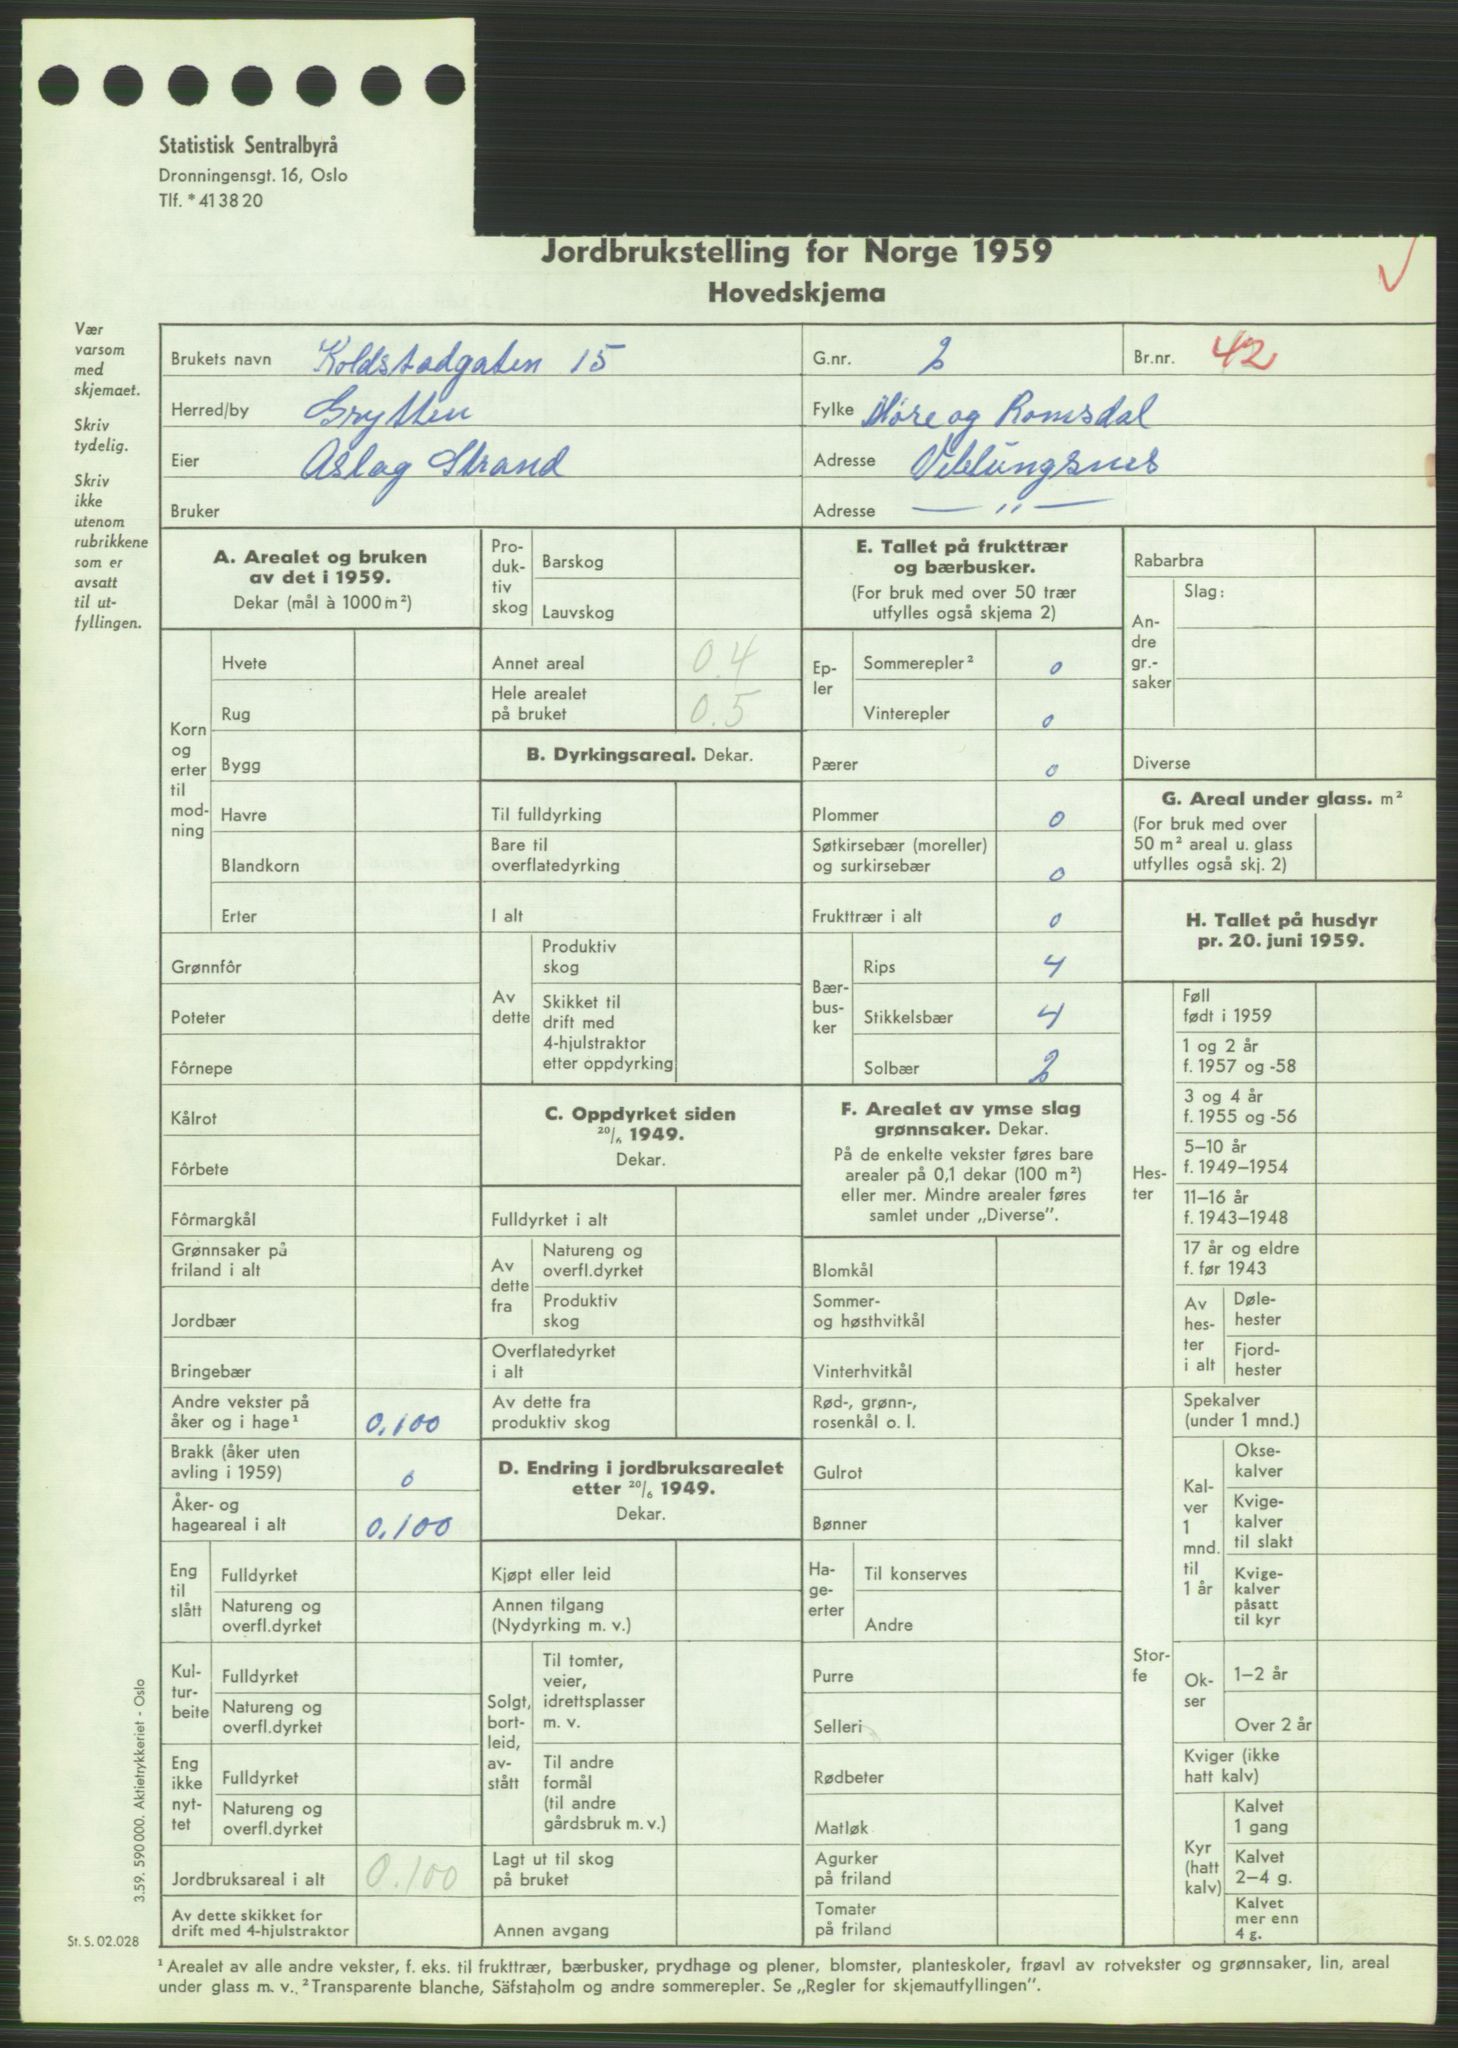 Statistisk Sentralbyrå
Dronningensgt. 16, Oslo
Tlf. * 41 38 20
Jordbrukstelling for Norge 1959
Hovedskjema
Vær
varsom
med
skjemaet.
Skriv
tydelig.
Skriv
ikke
utenom
rubrikkene
som er
avsatt
til ut-
fyllingen.
Brukets navn Koldstadgaten 15 G.nr. 2 Br.nr. 42
Herred/by Grytten Fylke Møre og Romsdal
Eier Aslag Strand Adresse Veblungsnes
Bruker Adresse — " —
A. Arealet og bruken
av det i 1959.
Dekar (mål à 1000 m²)
Korn
og
erter
til
mod-
ning
Hvete
Rug
Bygg
Havre
Blandkorn
Erter
Grønnfôr
Poteter
Fôrnepe
Kålrot
Fôrbete
Fôrmargkål
Grønnsaker på
friland i alt
Jordbær
Bringebær
Andre vekster på
åker og i hage¹ 0.100
Brakk (åker uten
avling i 1959) 0
Åker- og
hageareal i alt 0.100
Eng
til
slått
Fulldyrket
Natureng og
overfl.dyrket
Kul-
tur-
beite
Fulldyrket
Natureng og
overfl.dyrket
Eng
ikke
nyt-
tet
Fulldyrket
Natureng og
overfl.dyrket
Jordbruksareal i alt 0.100
Av dette skikket for
drift med 4-hjulstraktor
Pro-
duk-
tiv
skog
Barskog
Lauvskog
Annet areal 0.4
Hele arealet
på bruket 0.5
B. Dyrkingsareal. Dekar.
Til fulldyrking
Bare til
overflatedyrking
I alt
Av
dette
Produktiv
skog
Skikket til
drift med
4-hjulstraktor
etter oppdyrking
C. Oppdyrket siden
20/6 1949.
Dekar.
Fulldyrket i alt
Av
dette
fra
Natureng og
overfl.dyrket
Produktiv
skog
Overflatedyrket
i alt
Av dette fra
produktiv skog
D. Endring i jordbruksarealet
etter 20/6 1949.
Dekar.
Kjøpt eller leid
Annen tilgang
(Nydyrking m. v.)
Solgt,
bort-
leid,
av-
stått
Til tomter,
veier,
idrettsplasser
m. v.
Til andre
formål
(til andre
gårdsbruk m. v.)
Lagt ut til skog
på bruket
Annen avgang
E. Tallet på frukttrær
og bærbusker.
(For bruk med over 50 trær
utfylles også skjema 2)
Ep-
ler
Sommerepler² 0
Vinterepler 0
Pærer 0
Plommer 0
Søtkirsebær (moreller)
og surkirsebær 0
Frukttrær i alt 0
Bær-
bus-
ker
Rips 4
Stikkelsbær 4
Solbær 2
F. Arealet av ymse slag
grønnsaker. Dekar.
På de enkelte vekster føres bare
arealer på 0,1 dekar (100 m²)
eller mer. Mindre arealer føres
samlet under „Diverse”.
Blomkål
Sommer-
og høsthvitkål
Vinterhvitkål
Rød-, grønn-,
rosenkål o. l.
Gulrot
Bønner
Ha-
ge-
erter
Til konserves
Andre
Purre
Selleri
Rødbeter
Matløk
Agurker
på friland
Tomater
på friland
Rabarbra
An-
dre
gr.-
saker
Slag:
Diverse
G. Areal under glass. m²
(For bruk med over
50 m² areal u. glass
utfylles også skj. 2)
H. Tallet på husdyr
pr. 20. juni 1959.
Hes-
ter
Føll
født i 1959
1 og 2 år
f. 1957 og -58
3 og 4 år
f. 1955 og -56
5–10 år
f. 1949–1954
11–16 år
f. 1943–1948
17 år og eldre
f. før 1943
Av
hes-
ter
i alt
Døle-
hester
Fjord-
hester
Stor-
fe
Spekalver
(under 1 mnd.)
Kal-
ver
1
mnd.
til
1 år
Okse-
kalver
Kvige-
kalver
til slakt
Kvige-
kalver
påsatt
til kyr
Ok-
ser
1–2 år
Over 2 år
Kviger (ikke
hatt kalv)
Kyr
(hatt
kalv)
Kalvet
1 gang
Kalvet
2–4 g.
Kalvet
mer enn
4 g.
3.59. 590 000. Aktietrykkeriet - Oslo
St. S. 02.028
¹ Arealet av alle andre vekster, f. eks. til frukttrær, bærbusker, prydhage og plener, blomster, planteskoler, frøavl av rotvekster og grønnsaker, lin, areal
under glass m. v. ² Transparente blanche, Säfstaholm og andre sommerepler. Se „Regler for skjemautfyllingen”.